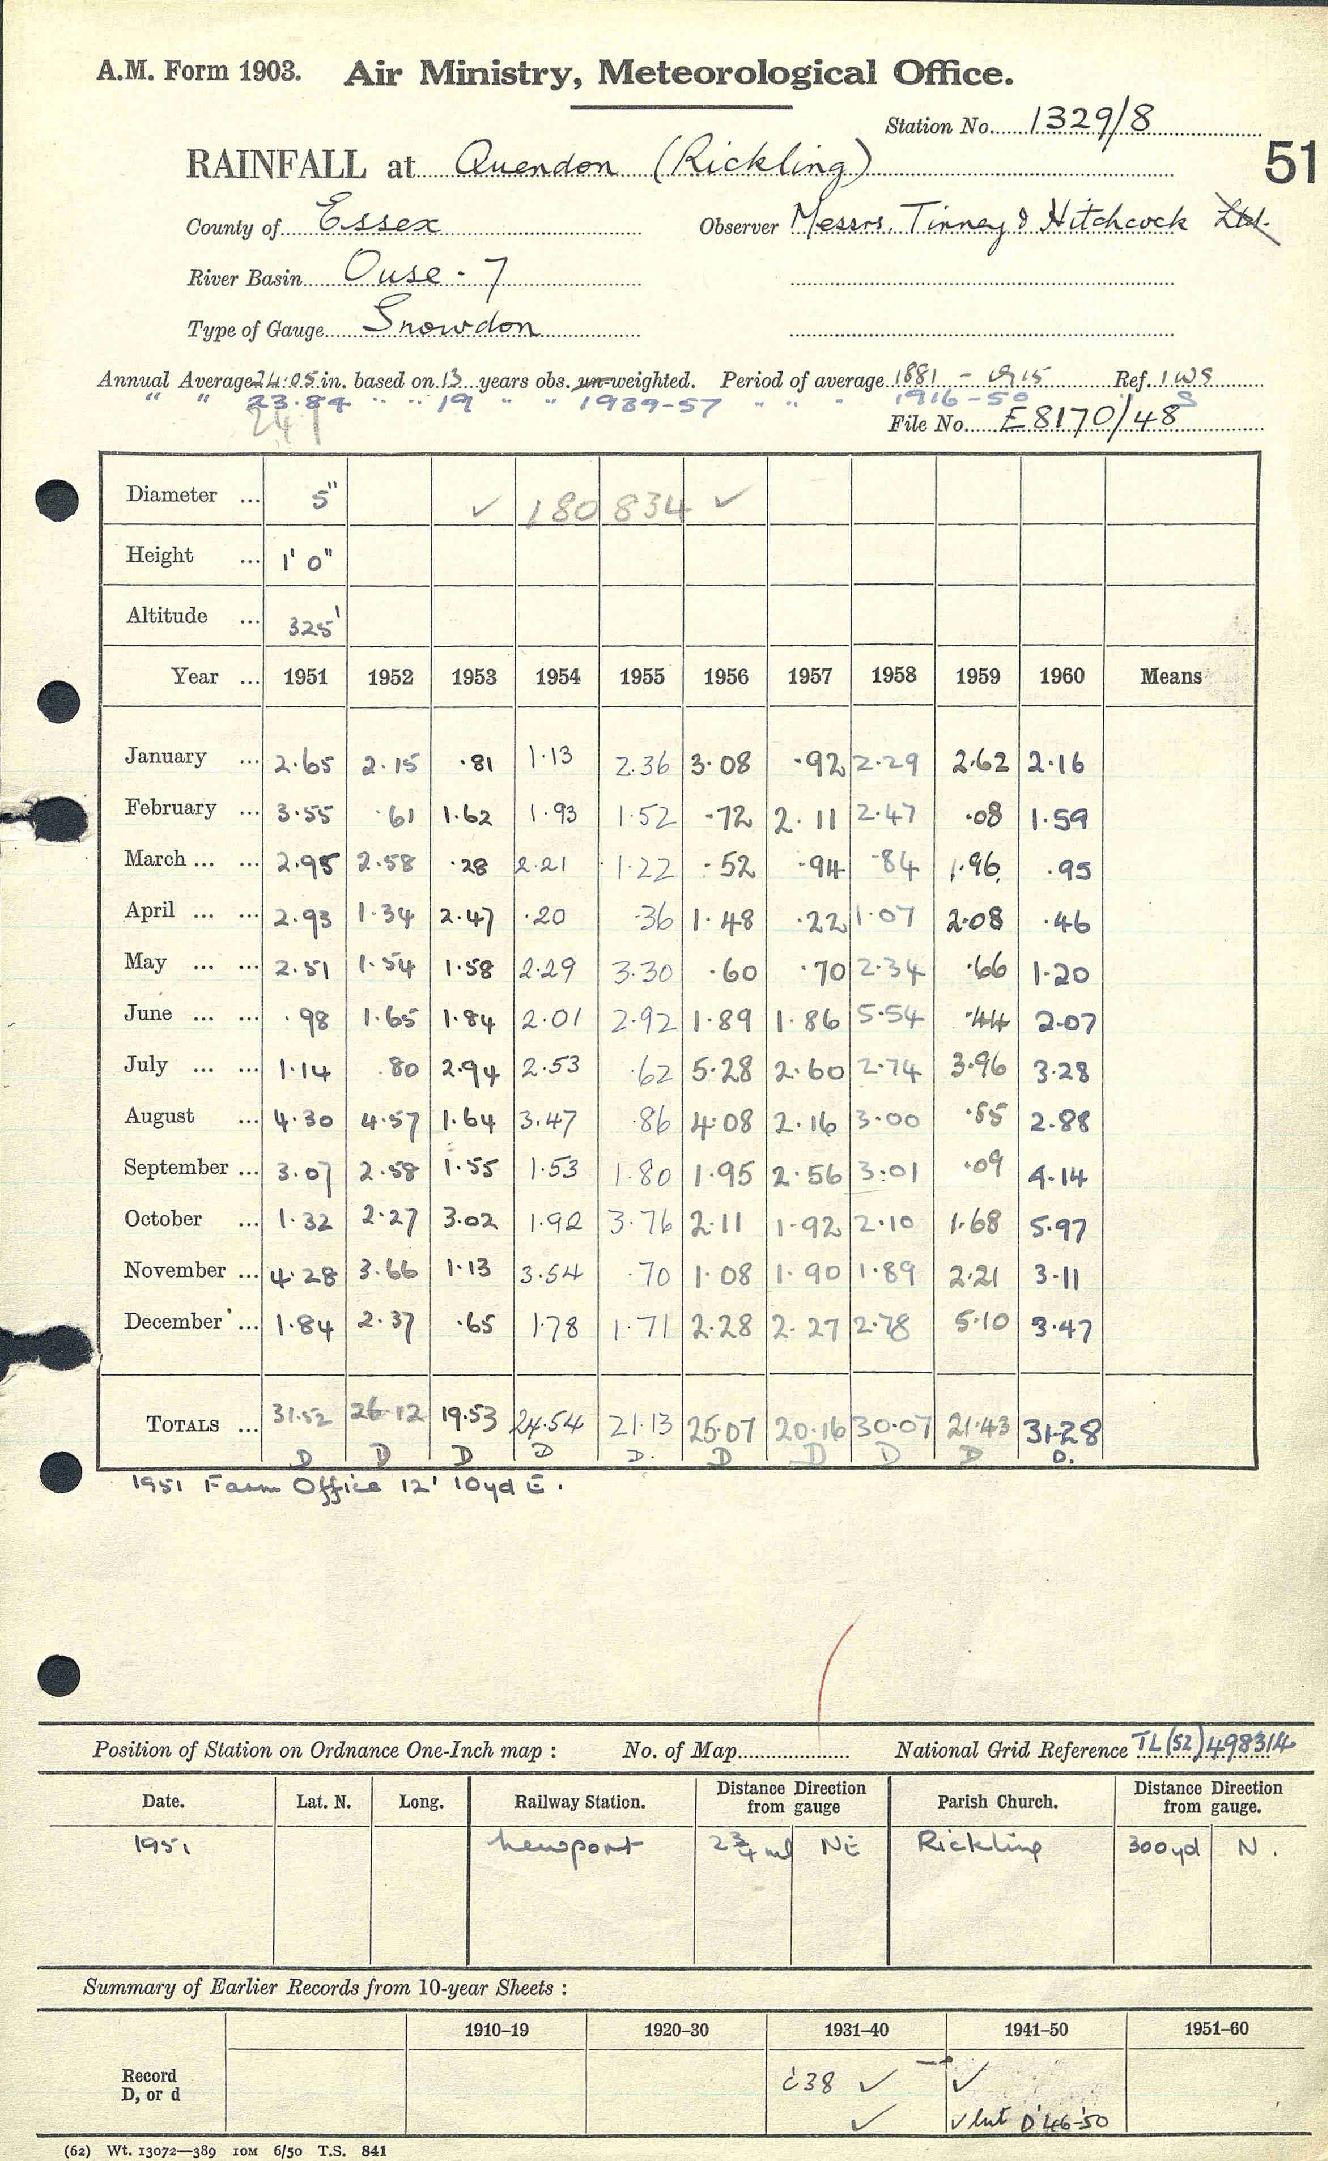 A.M. Form 1903. Air Ministry, Meteorological Office.
Station No. 1329/8
RAINFALL at Quendon (Rickling) 51
County of Essex Observer Messrs. Tinney & Hitchcock Ltd.
River Basin Ouse - 7
Type of Gauge Snowdon
Annual Average 24.05 in. based on 13 years obs. un-weighted. Period of average 1881 - 1915 Ref. 1 WS
" " 23.84 " " 19 " " 1939-57 " " " 1916-50 " S
241
File No. E8170/48
Diameter ... 5" ✓ 180 834 ✓
Height ... 1' 0"
Altitude ... 325'
Year ... 1951 1952 1953 1954 1955 1956 1957 1958 1959 1960 Means
January ... 2.65 2.15 .81 1.13 2.36 3.08 .92 2.29 2.62 2.16
February ... 3.55 .61 1.62 1.93 1.52 .72 2.11 2.47 .08 1.59
March ... ... 2.95 2.58 .28 2.21 1.22 .52 .94 .84 1.96 .95
April ... ... 2.93 1.34 2.47 .20 .36 1.48 .22 1.07 2.08 .46
May ... ... 2.51 1.54 1.58 2.29 3.30 .60 .70 2.34 .66 1.20
June ... ... .98 1.65 1.84 2.01 2.92 1.89 1.86 5.54 .44 2.07
July ... ... 1.14 .80 2.94 2.53 .62 5.28 2.60 2.74 3.96 3.28
August ... 4.30 4.57 1.64 3.47 .86 4.08 2.16 3.00 .55 2.88
September ... 3.07 2.58 1.55 1.53 1.80 1.95 2.56 3.01 .09 4.14
October ... 1.32 2.27 3.02 1.92 3.76 2.11 1.92 2.10 1.68 5.97
November ... 4.28 3.66 1.13 3.54 .70 1.08 1.90 1.89 2.21 3.11
December ... 1.84 2.37 .65 1.78 1.71 2.28 2.27 2.78 5.10 3.47
TOTALS ... 31.52 26.12 19.53 24.54 21.13 25.07 20.16 30.07 21.43 31.28
D D D D D. D D D D D.
1951 Farm Office 12' 10yd E.
Position of Station on Ordnance One-Inch map : No. of Map National Grid Reference TL(52)498314
Date. Lat. N. Long. Railway Station. Distance Direction from gauge Parish Church. Distance Direction from gauge.
1951 Newport 2¾ ml NE Rickling 300yd N.
Summary of Earlier Records from 10-year Sheets :
1910–19 1920–30 1931–40 1941–50 1951–60
Record
D, or d
c38 ✓ ✓
✓ ✓ but D'46-'50
(62) Wt. 13072—389 10M 6/50 T.S. 841